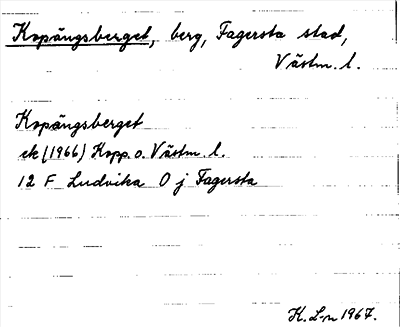 Kopängsberget, berg, Fagersta stad,
Västm. l.
Kopängsberget
ek (1966) Kopp. o. Västm. l.
12 F Ludvika O j Fagersta
K. L-n 1967.